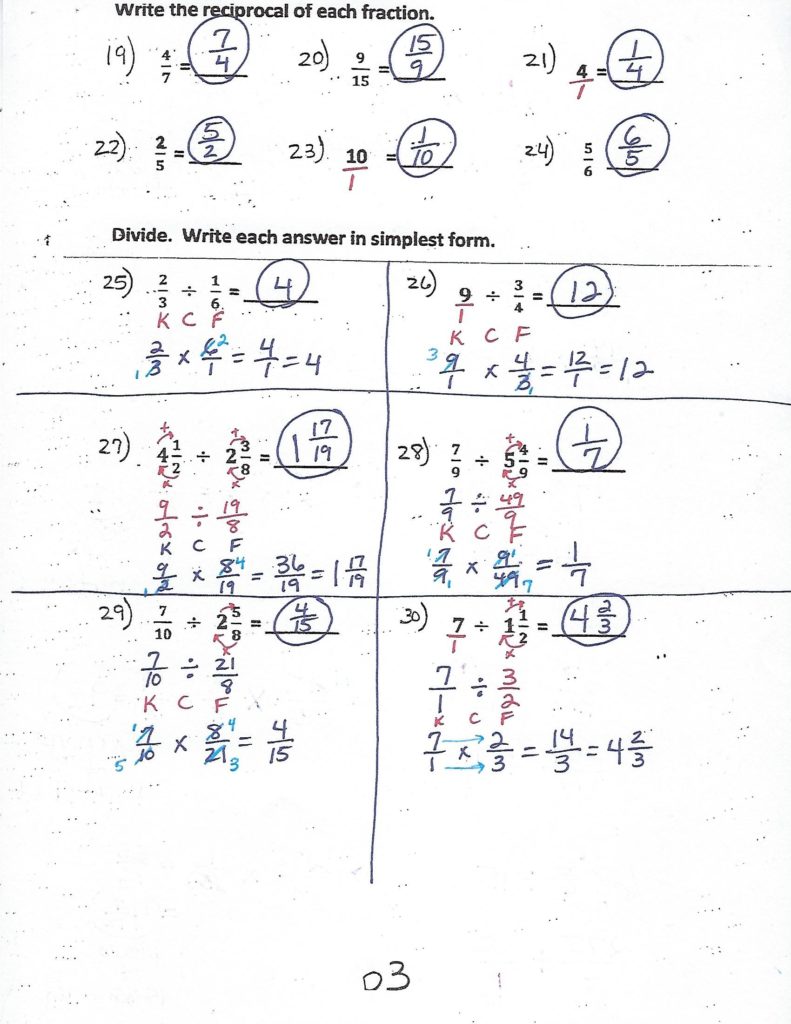 Write the reciprocal of each fraction.
19) 4/7 = 7/4 20) 9/15 = 15/9 21) 4/1 = 1/4
22) 2/5 = 5/2 23) 10/1 = 1/10 24) 5/6 6/5
Divide. Write each answer in simplest form.
25) 2/3 ÷ 1/6 = 4
K C F
1 2/3 × 6/1 2 = 4/1 = 4
26) 9/1 ÷ 3/4 = 12
K C F
3 9/1 × 4/3 1 = 12/1 = 12
27) 4 1/2 ÷ 2 3/8 = 1 17/19
+ +
x x
9/2 ÷ 19/8
K C F
1 9/2 × 8/19 4 = 36/19 = 1 17/19
28) 7/9 ÷ 5 4/9 = 1/7
+
x
7/9 ÷ 49/9
K C F
1 7/9 1 × 1 9/49 7 = 1/7
29) 7/10 ÷ 2 5/8 = 4/15
x
7/10 ÷ 21/8
K C F
1 7/10 5 × 8/21 4 3 = 4/15
30) 7/1 ÷ 1 1/2 = 4 2/3
+
x
7/1 ÷ 3/2
K C F
7/1 × 2/3 = 14/3 = 4 2/3
03